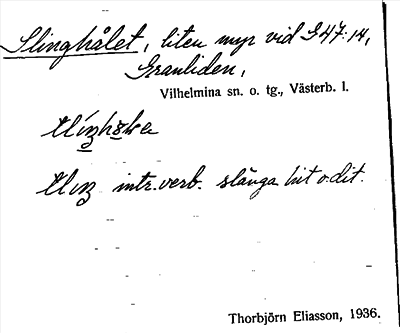 Slinghålet, liten myr vid G 47:14,
Granliden,
Vilhelmina sn. o. tg., Västerb. l.
intr. verb. slänga hit o. dit.
Thorbjörn Eliasson, 1936.